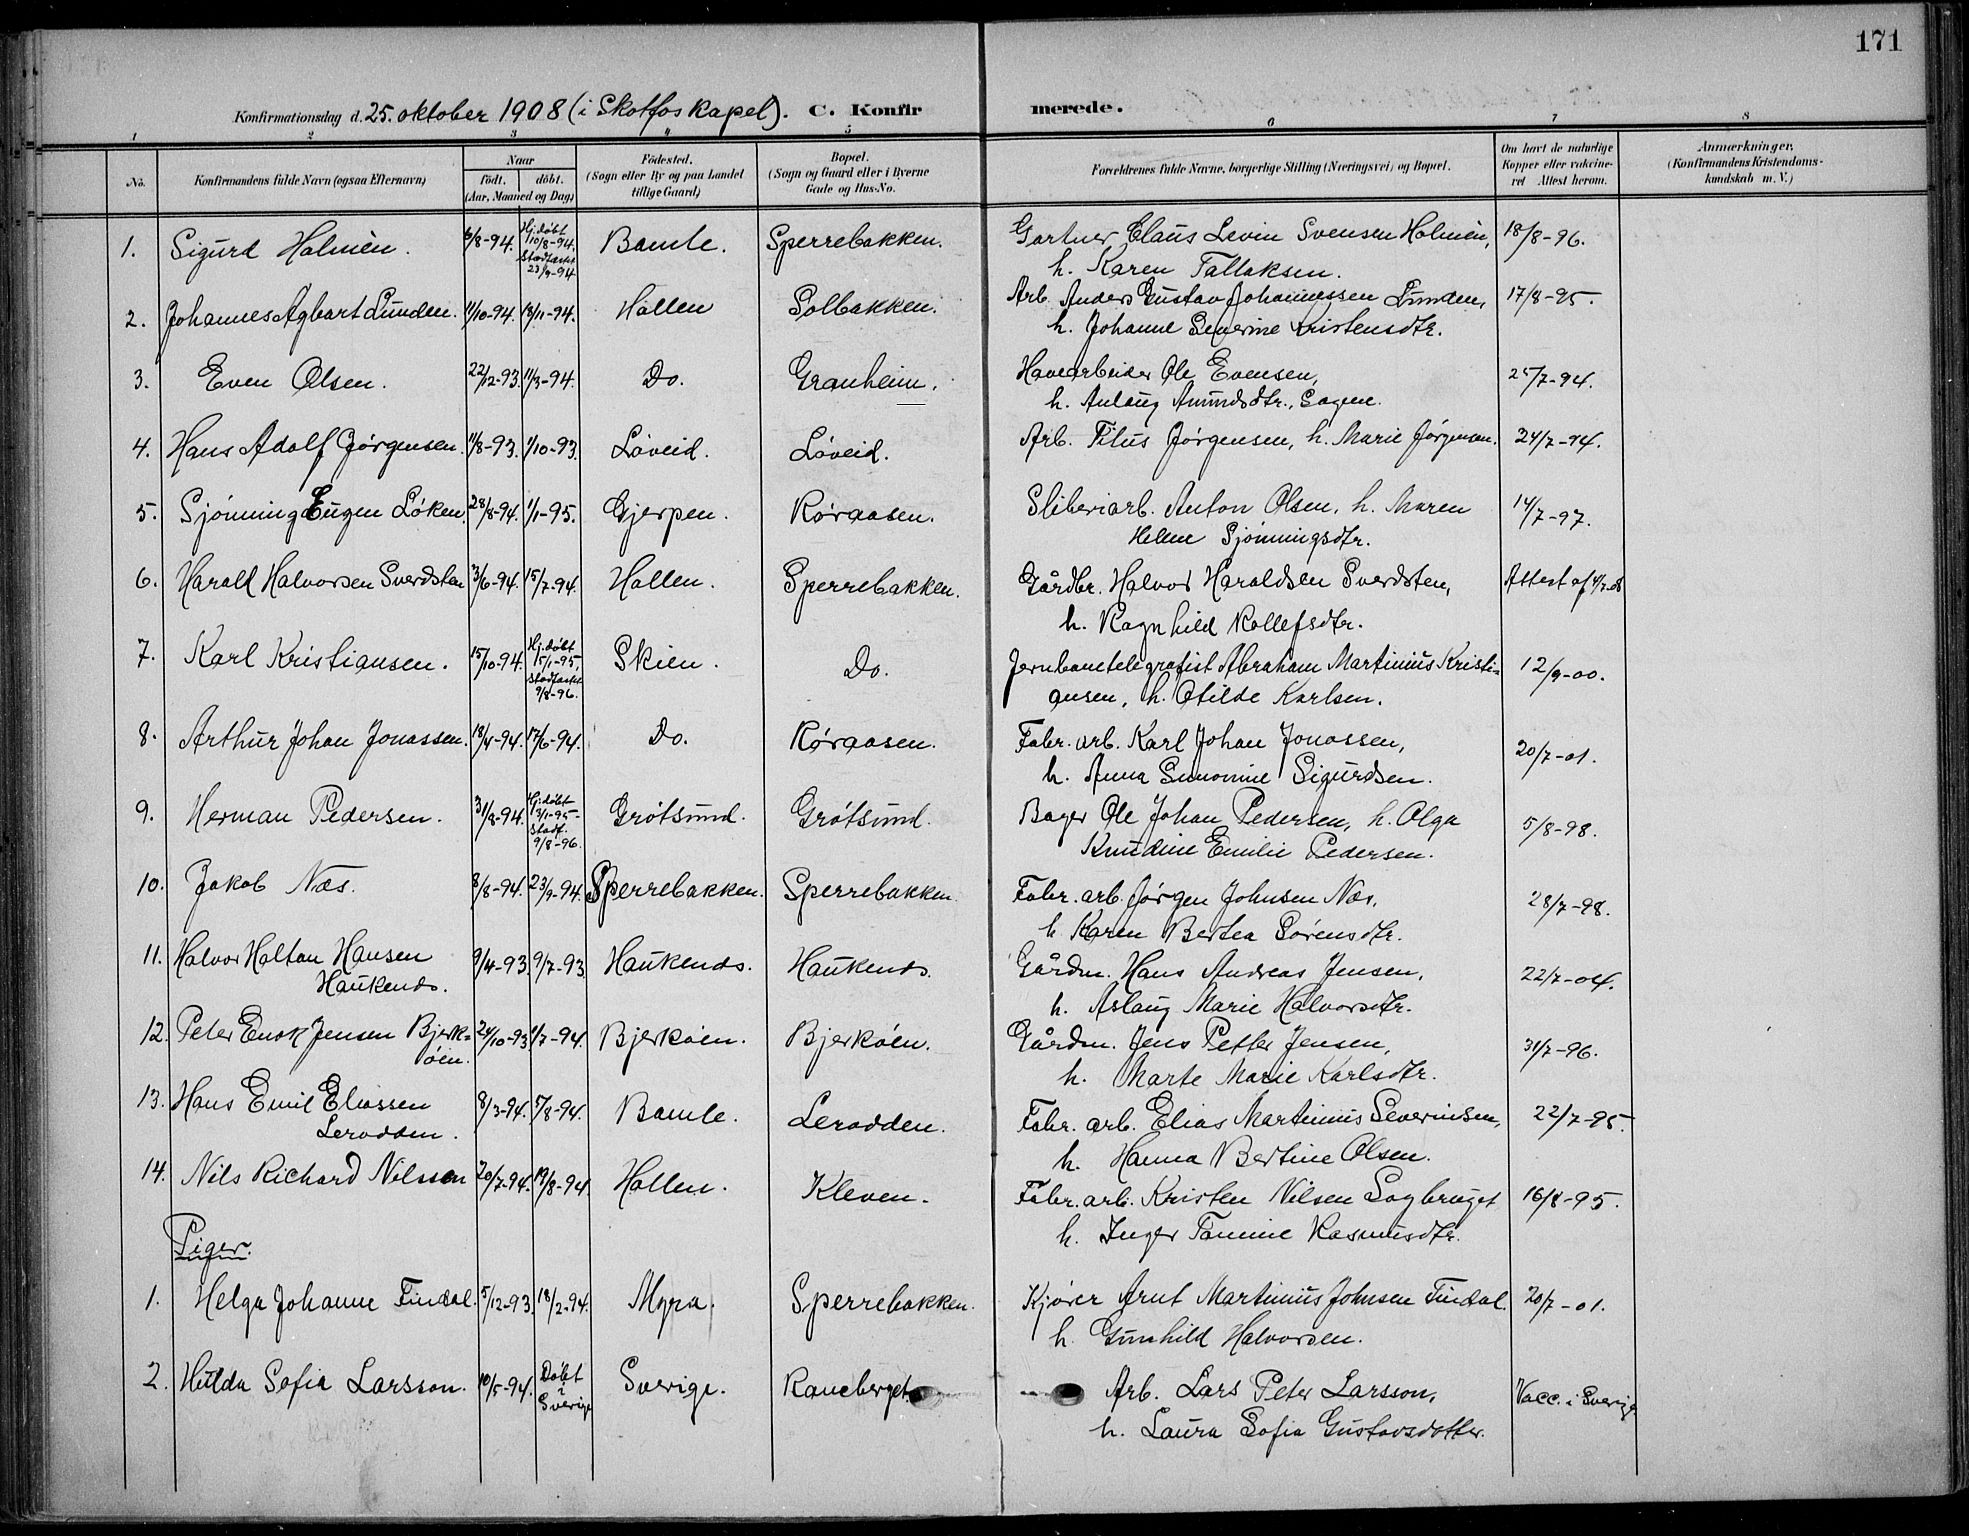 171
Konfirmationsdag d. 25. oktober 1908 (i Skotfos kapel). C. Konfirmerede.
1 2 3 4 5 6 7 8
No. Konfirmandens fulde Navn (ogsaa Efternavn) Naar født. døbt. (Aar, Maaned og Dag) Fødested. (Sogn eller By og paa Landet tillige Gaard) Bopæl. (Sogn og Gaard eller i Byerne Gade og Hus-No. Forældrenes fulde Navne, borgerlige Stilling (Næringsvei) og Bopæl. Om havt de naturlige Kopper eller vakcineret Attest herom. Anmærkninger, (Konfirmandens Kristendomskundskab m. V.)
1. Sigurd Holmèn. 6/8-94. Hj.døbt 10/8-94. Stadfæstet 23/9-94 Bamle. Sperrebakken. Gartner Claus Levin Svensen Holmèn, 18/8-96.
h. Karen Tallaksen.
2. Johannes Agbart Lunden. 11/10-94. 18/11-94. Hollen Solbakken. Arb. Anders Gustav Johannessen Lunden, 17/8-95.
h. Johanne Severine Kristensdtr.
3. Even Olsen. 22/12-93. 11/3-94. Do. Granheim. Havearbeider Ole Evensen, 25/7-94.
h. Aslaug Amundsdtr., Sagene.
4. Hans Adolf Jørgensen. 11/8-93. 1/10-93. Løveid. Løveid. Arb. Titus Jørgensen, h. Marie Jørgensen. 24/7-94.
5. Sjønning Eugen Løken. 28/8-94. 1/1-95. Gjerpen. Røraasen. Sliberiarb. Anton Olsen, h. Maren 14/7-97.
Helene Sjønningsdtr.
6. Harald Halvorsen Sverdsten 3/6-94. 15/7-94. Hollen. Sperrebakken. Gårdbr. Halvor Haraldsen Sverdsten, Attest af 4/7-08
h. Ragnhild Rollefsdtr.
7. Karl Kristiansen. 15/10-94. Hj.døbt 15/1-95, stadfæstet 9/8-96. Skien. Do. Jernbanetelegrafist Abraham Martinius Kristi- 12/9-00.
ansen, h. Otilde Karlsen.
8. Arthur Johan Jonassen. 18/4-94. 17/6-94. Do. Røraasen. Fabr. arb. Karl Johan Jonassen, 20/7-01.
h. Anna Sigurdsen.
9. Herman Pedersen. 31/8-94. Hj.døbt 3/1-95- stadf. 9/8-96. Grøtsund. Grøtsund. Bager Ole Johan Pedersen, h. Olga 5/8-98.
Knudine Emilie Pedersen.
10. Jakob Næs. 8/8-94. 23/9-94. Sperrebakken. Sperrebakken. Fabr. arb. Jørgen Johnsen Næs, 28/7-98.
h. Karen Bertea Sørensdtr.
11. Halvor Holtan Hansen 9/4-93. 9/7-93. Haukenes. Haukenes. Gårdm. Hans Andreas Jensen, 22/7-04.
Haukenes. h. Aslaug Marie Halvorsdtr.
12. Peter Enok Jensen Bjerk- 24/10-93. 1/7-94. Bjerkøen. Bjerkøen. Gårdm. Jens Petter Jensen, 31/7-96.
øen. h. Marte Marie Karlsdtr.
13. Hans Emil Eliassen 8/3-94. 5/8-94. Bamle. Lerodden. Fabr. arb. Elias Martinius Severinsen, 22/7-95.
Lerodden. h. Hanna Bertine Olsen.
14. Nils Richard Nilssen 20/7-94. 19/8-94. Hollen. Kleven. Fabr. arb. Kristen Nilsen Sagbruget 16/8-95.
h. Inger Tomine Rasmusdtr.
Piger.
1. Helga Johanne Findal. 5/12-93. 18/2-94. Myra. Sperrebakken. Kjører Arnt Martinius Johnsen Findal 20/7-01.
h. Gunhild Halvorsen.
2. Hulda Sofia Larsson. 10/5-94. Døbt i Sverige Sverige. Raneberget. Arb. Lars Peter Larsson, Vacc. i Sverige
h. Laura Sofia Gustavsdotter.